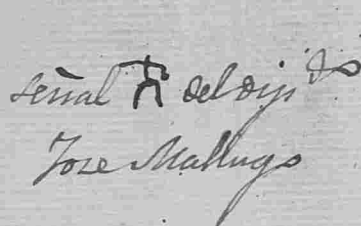 señal del dip do
Jose Mallugo